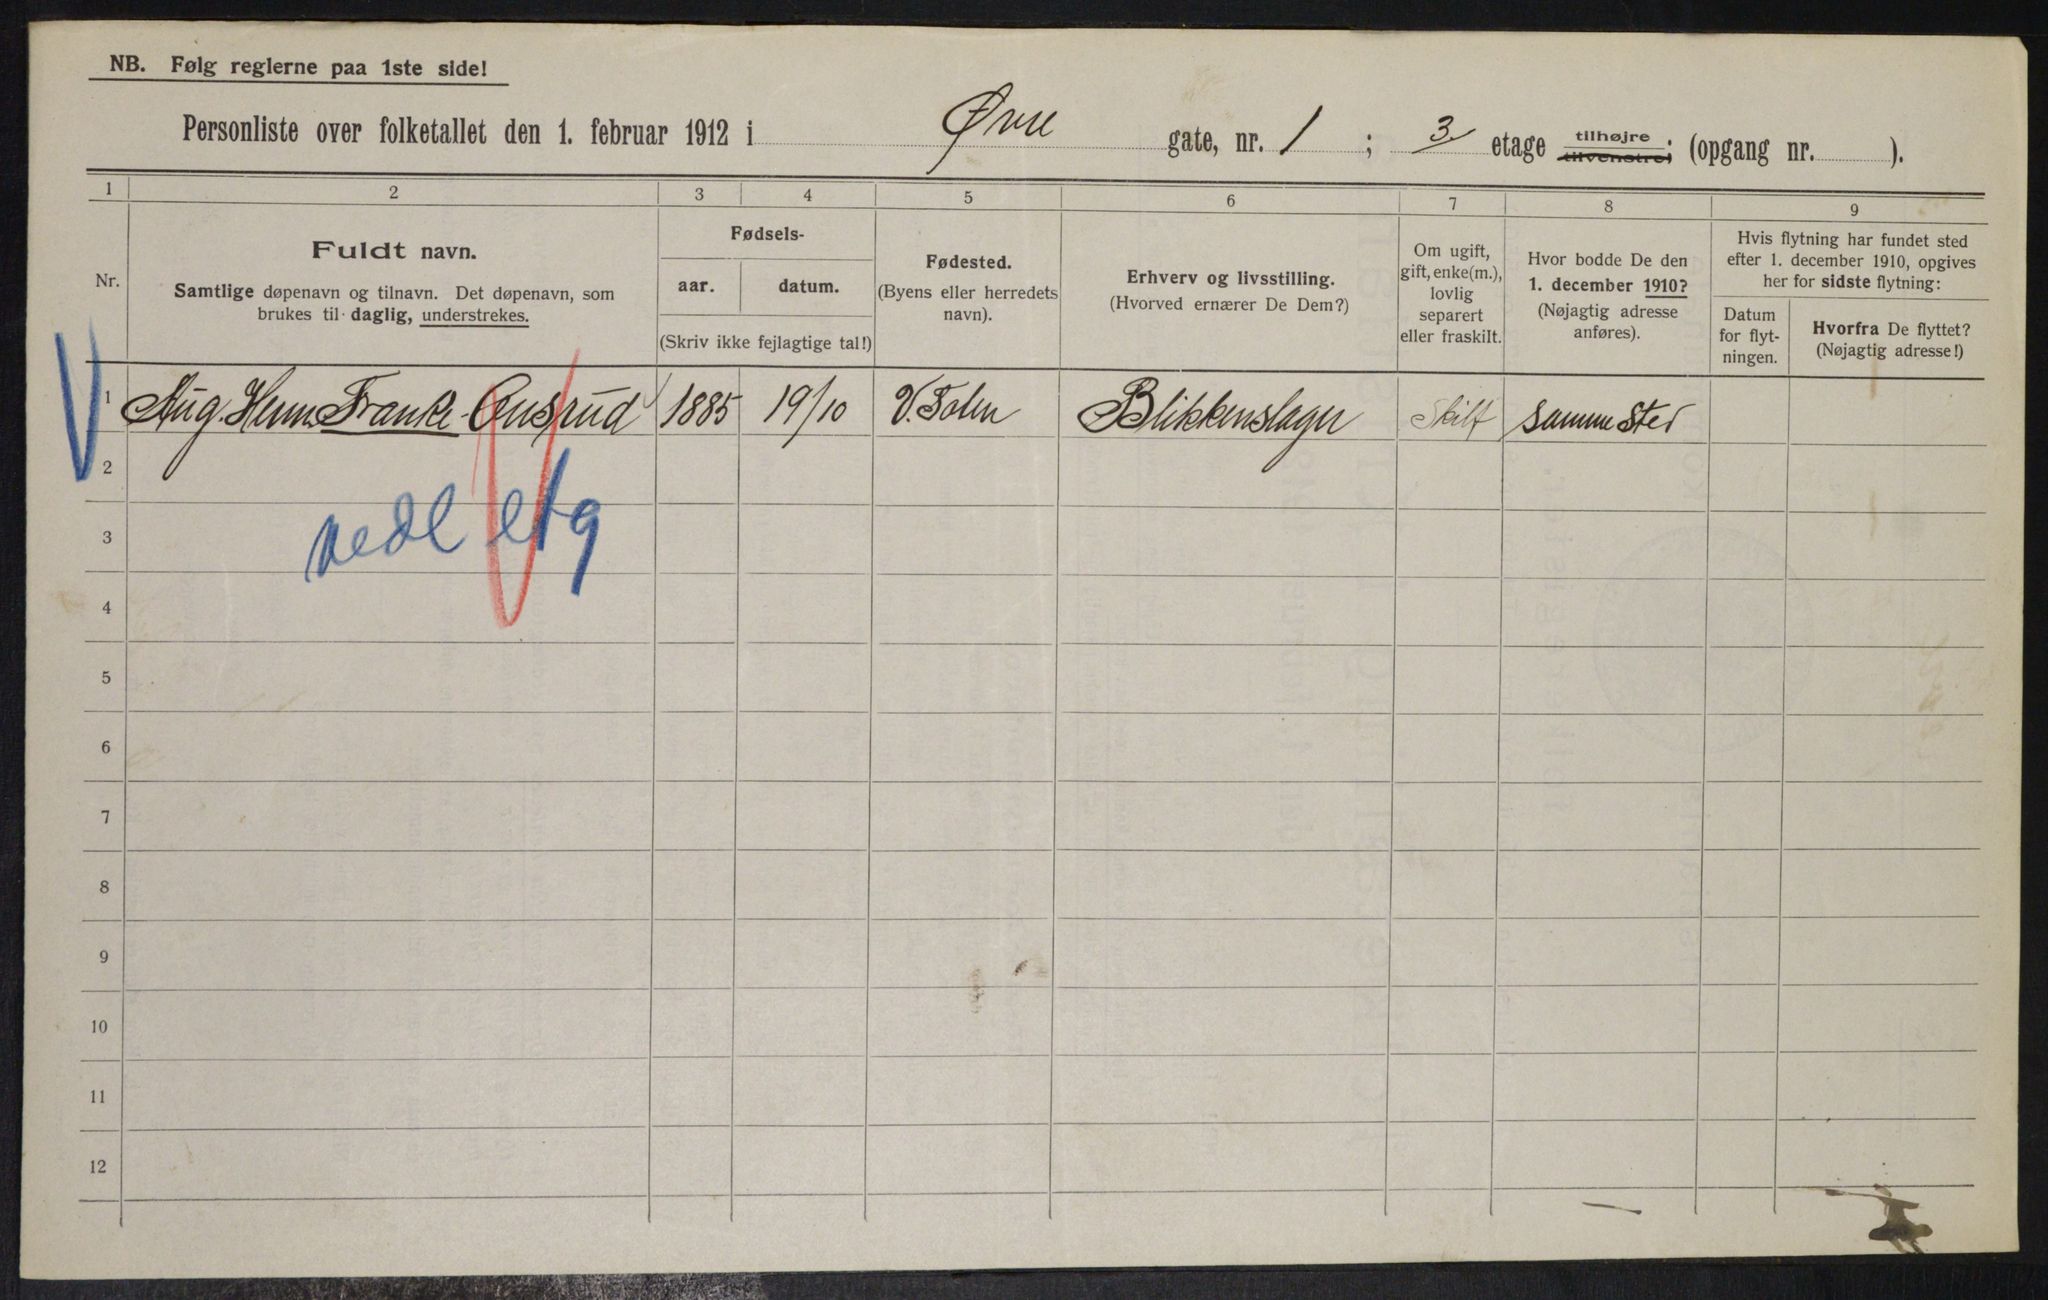 NB. Følg reglerne paa 1ste side!
Personliste over folketallet den 1. februar 1912 i Øvre gate, nr. 1 ; 3 etage tilhøjre tilvenstre; (opgang nr. ).
1 2 3 4 5 6 7 8 9
Nr.
Fuldt navn.
Samtlige døpenavn og tilnavn. Det døpenavn, som
brukes til daglig, understrekes.
Fødsels-
aar. datum.
(Skriv ikke fejlagtige tal!)
Fødested.
(Byens eller herredets
navn).
Erhverv og livsstilling.
(Hvorved ernærer De Dem?)
Om ugift,
gift, enke(m.),
lovlig
separert
eller fraskilt.
Hvor bodde De den
1. december 1910?
(Nøjagtig adresse
anføres).
Hvis flytning har fundet sted
efter 1. december 1910, opgives
her for sidste flytning:
Datum
for flyt-
ningen.
Hvorfra De flyttet?
(Nøjagtig adresse!)
1 Aug. Herm. Franke Onsrud 1885 19/10 V. Toten Blikkenslager Skilt samme sted
2
nedl etg
3
4
5
6
7
8
9
10
11
12